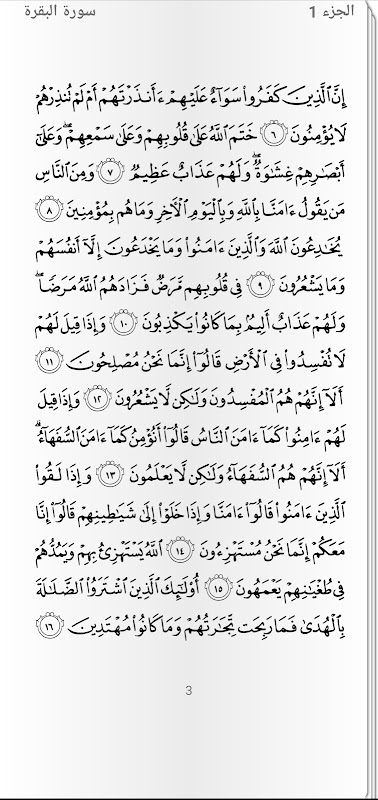 الجزء 1
سورة البقرة
إِنَّ ٱلَّذِينَ كَفَرُوا۟ سَوَآءٌ عَلَيْهِمْ ءَأَنذَرْتَهُمْ أَمْ لَمْ تُنذِرْهُمْ
لَا يُؤْمِنُونَ ٦ خَتَمَ ٱللَّهُ عَلَىٰ قُلُوبِهِمْ وَعَلَىٰ سَمْعِهِمْ ۖ وَعَلَىٰٓ
أَبْصَـٰرِهِمْ غِشَـٰوَةٌ ۖ وَلَهُمْ عَذَابٌ عَظِيمٌ ٧ وَمِنَ ٱلنَّاسِ
مَن يَقُولُ ءَامَنَّا بِٱللَّهِ وَبِٱلْيَوْمِ ٱلْـَٔاخِرِ وَمَا هُم بِمُؤْمِنِينَ ٨
يُخَـٰدِعُونَ ٱللَّهَ وَٱلَّذِينَ ءَامَنُوا۟ وَمَا يَخْدَعُونَ إِلَّآ أَنفُسَهُمْ
وَمَا يَشْعُرُونَ ٩ فِى قُلُوبِهِم مَّرَضٌ فَزَادَهُمُ ٱللَّهُ مَرَضًا ۖ
وَلَهُمْ عَذَابٌ أَلِيمٌۢ بِمَا كَانُوا۟ يَكْذِبُونَ ١٠ وَإِذَا قِيلَ لَهُمْ
لَا تُفْسِدُوا۟ فِى ٱلْأَرْضِ قَالُوٓا۟ إِنَّمَا نَحْنُ مُصْلِحُونَ ١١
أَلَآ إِنَّهُمْ هُمُ ٱلْمُفْسِدُونَ وَلَـٰكِن لَّا يَشْعُرُونَ ١٢ وَإِذَا قِيلَ
لَهُمْ ءَامِنُوا۟ كَمَآ ءَامَنَ ٱلنَّاسُ قَالُوٓا۟ أَنُؤْمِنُ كَمَآ ءَامَنَ ٱلسُّفَهَآءُ ۗ
أَلَآ إِنَّهُمْ هُمُ ٱلسُّفَهَآءُ وَلَـٰكِن لَّا يَعْلَمُونَ ١٣ وَإِذَا لَقُوا۟
ٱلَّذِينَ ءَامَنُوا۟ قَالُوٓا۟ ءَامَنَّا وَإِذَا خَلَوْا۟ إِلَىٰ شَيَـٰطِينِهِمْ قَالُوٓا۟ إِنَّا
مَعَكُمْ إِنَّمَا نَحْنُ مُسْتَهْزِءُونَ ١٤ ٱللَّهُ يَسْتَهْزِئُ بِهِمْ وَيَمُدُّهُمْ
فِى طُغْيَـٰنِهِمْ يَعْمَهُونَ ١٥ أُو۟لَـٰٓئِكَ ٱلَّذِينَ ٱشْتَرَوُا۟ ٱلضَّلَـٰلَةَ
بِٱلْهُدَىٰ فَمَا رَبِحَت تِّجَـٰرَتُهُمْ وَمَا كَانُوا۟ مُهْتَدِينَ ١٦
3